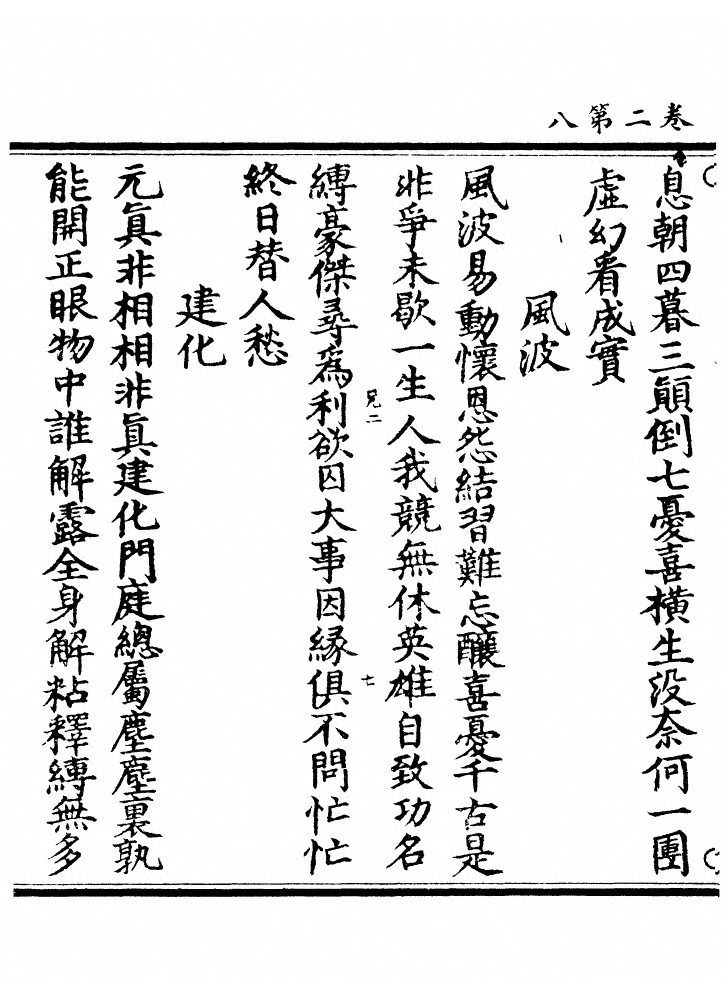 卷二第八
息朝四暮三顚倒七憂喜橫生没奈何一團
虛幻看成實
風波
風波易動懷恩怨結習難忘釀喜憂千古是
非爭未歇一生人我競無休英雄自致功名
兄二
七
縛豪傑尋爲利欲囚大事因縁俱不問忙忙
終日替人愁
建化
元眞非相相非眞建化門庭總屬塵塵裏孰
能開正眼物中誰解露全身解粘釋縛無多